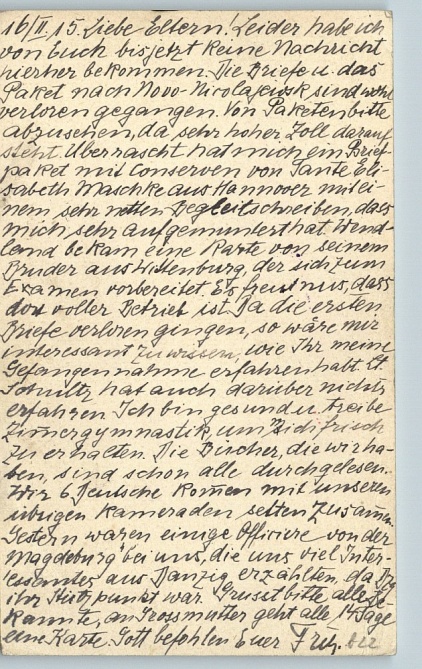 16/II.15. Liebe Eltern! Leider habe ich
von Euch bis jetzt keine Nachricht
hierher bekommen. Die Briefe u. das
Paket nach Novo-Nicolajewsk sind wohl
verloren gegangen. Von Paketen bitte
abzusehen, da sehr hoher Zoll darauf
steht. Überrascht hat mich ein Brief
paket mit Conserven von Tante Eli-
sabeth Maschke aus Hannover mit ei-
nem sehr netten Begleitschreiben, dass
mich sehr aufgemuntert hat. Wend-
land bekam eine Karte von seinem
Bruder aus Wittenburg, der sich zum
Examen vorbereitet. Es freut uns, dass
dort voller Betrieb ist. Da die ersten
Briefe verloren gingen, so wäre mir
interessant zu wissen, wie Ihr meine
Gefangennahme erfahren habt. Lt.
Schultz hat auch darüber nichts
erfahren. Ich bin gesund u. treibe
Zimmergymnastik, um mich frisch
zu erhalten. Die Bücher, die wir ha-
ben, sind schon alle durchgelesen.
Wir 6 Deutsche kom̄en mit unseren
übrigen Kameraden selten zusam̄en.
Gestern waren einige Officiere von der
"Magdeburg" bei uns, die uns viel Inter-
essantes aus Danzig erzählten, da
ihr Stützpunkt war. Grüsst bitte alle Be-
kannte, an Grossmutter geht alle 14 Tage
eine Karte. Gott befohlen Euer